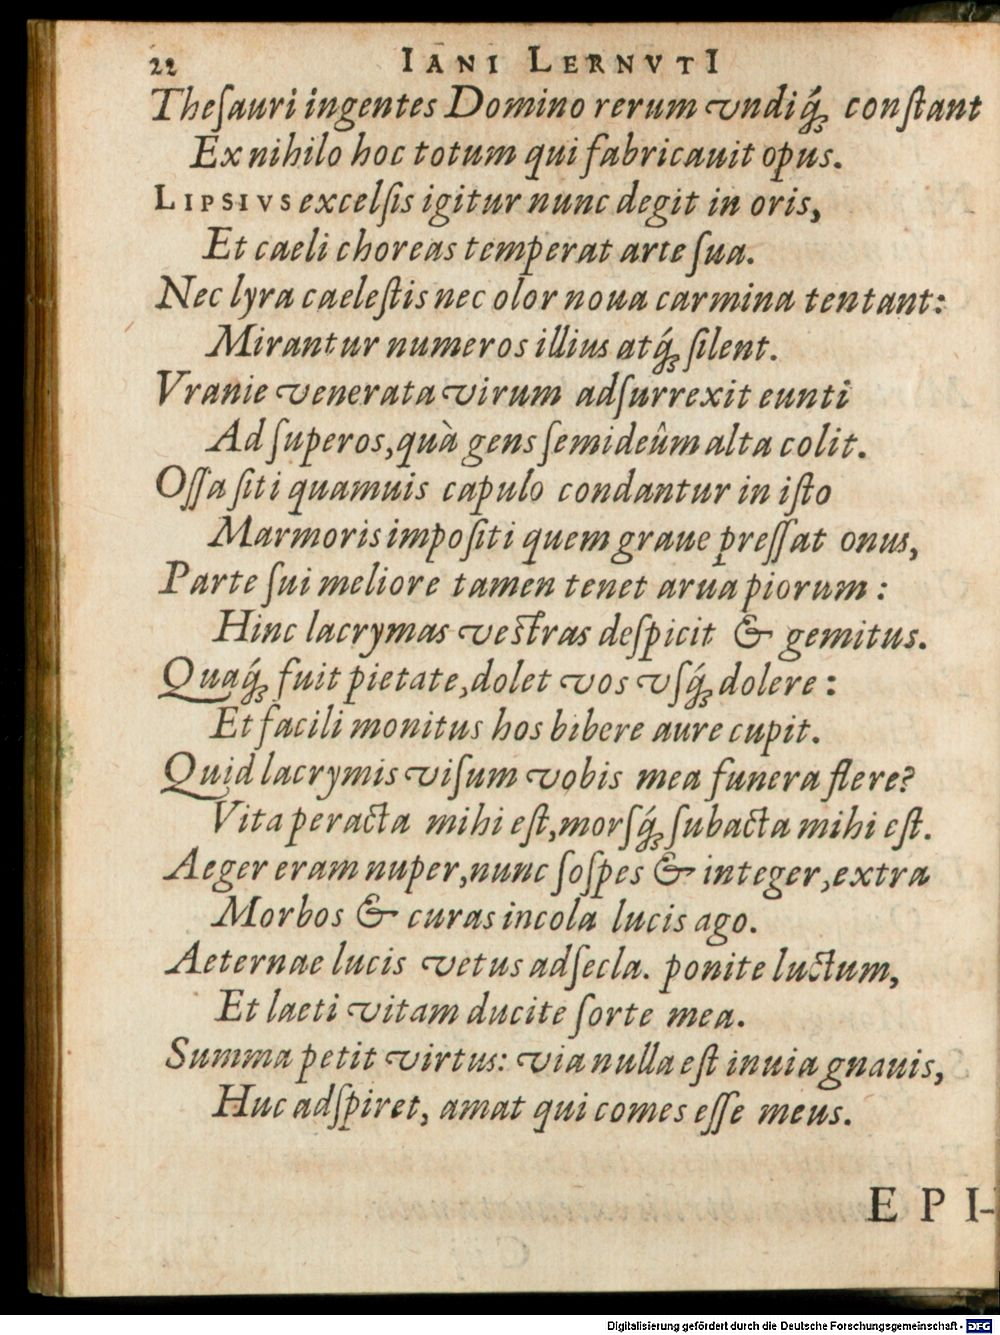 22 IANI LERNVTI
Theſauri ingentes Domino rerum vndiq́; conſtant
Ex nihilo hoc totum qui fabricauit opus.
LIPSIVS excelſis igitur nunc degit in oris,
Et caeli choreas temperat arte ſua.
Nec lyra caeleſtis nec olor noua carmina tentant:
Mirantur numeros illius atq́; ſilent.
Vranie venerata virum adſurrexit eunti
Ad ſuperos, quà gens ſemideûm alta colit.
Oſſa ſiti quamuis capulo condantur in iſto
Marmoris impoſiti quem graue preſſat onus,
Parte ſui meliore tamen tenet arua piorum:
Hinc lacrymas veſtras deſpicit & gemitus.
Quaq́; fuit pietate, dolet vos vſq́; dolere:
Et facili monitus hos bibere aure cupit.
Quid lacrymis viſum vobis mea funera flere?
Vita peracta mihi eſt, morſq́; ſubacta mihi eſt.
Aeger eram nuper, nunc ſoſpes & integer, extra
Morbos & curas incola lucis ago.
Aeternae lucis vetus adſecla. ponite luctum,
Et laeti vitam ducite ſorte mea.
Summa petit virtus: via nulla eſt inuia gnauis,
Huc adſpiret, amat qui comes eſſe meus.
EPI-
Digitalisierung gefördert durch die Deutsche Forschungsgemeinschaft - DFG